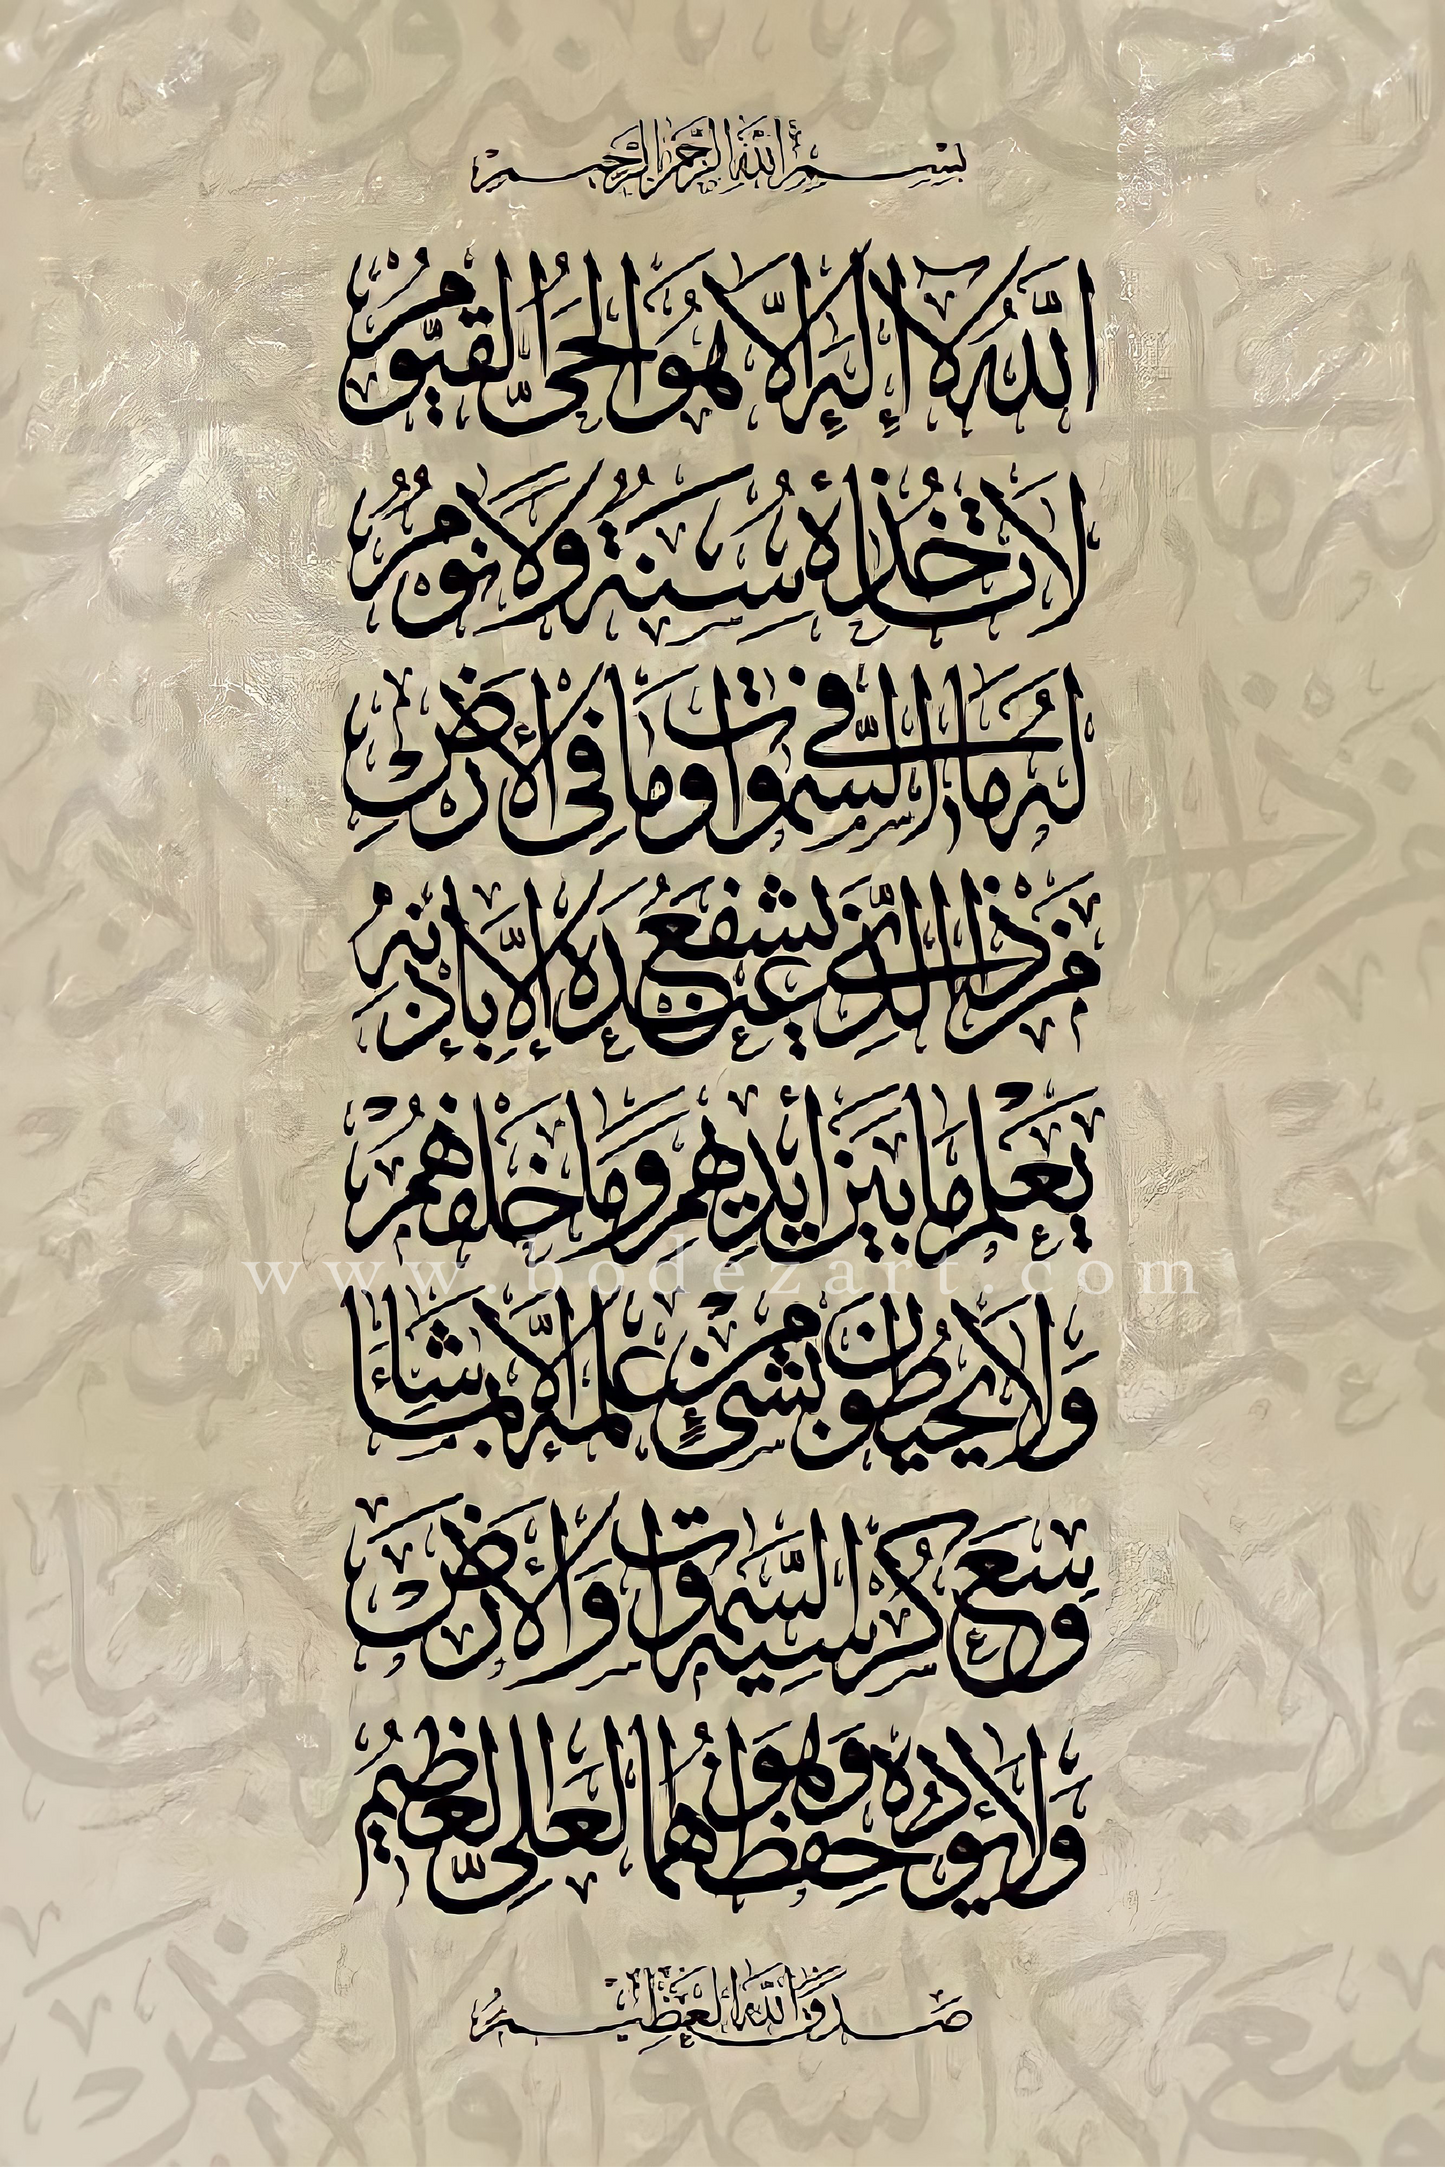 بِسْمِ اللَّهِ الرَّحْمَنِ الرَّحِيمِ
اللَّهُ لَا إِلَهَ إِلَّا هُوَ الْحَيُّ الْقَيُّومُ
لَا تَأْخُذُهُ سِنَةٌ وَلَا نَوْمٌ
لَهُ مَا فِي السَّمَوَاتِ وَمَا فِي الْأَرْضِ
مَنْ ذَا الَّذِي يَشْفَعُ عِنْدَهُ إِلَّا بِإِذْنِهِ
يَعْلَمُ مَا بَيْنَ أَيْدِيهِمْ وَمَا خَلْفَهُمْ
www.bodezart.com
وَلَا يُحِيطُونَ بِشَيْءٍ مِنْ عِلْمِهِ إِلَّا بِمَا شَاءَ
وَسِعَ كُرْسِيُّهُ السَّمَوَاتِ وَالْأَرْضَ
وَلَا يَئُودُهُ حِفْظُهُمَا وَهُوَ الْعَلِيُّ الْعَظِيمُ
صَدَقَ اللَّهُ الْعَظِيمُ